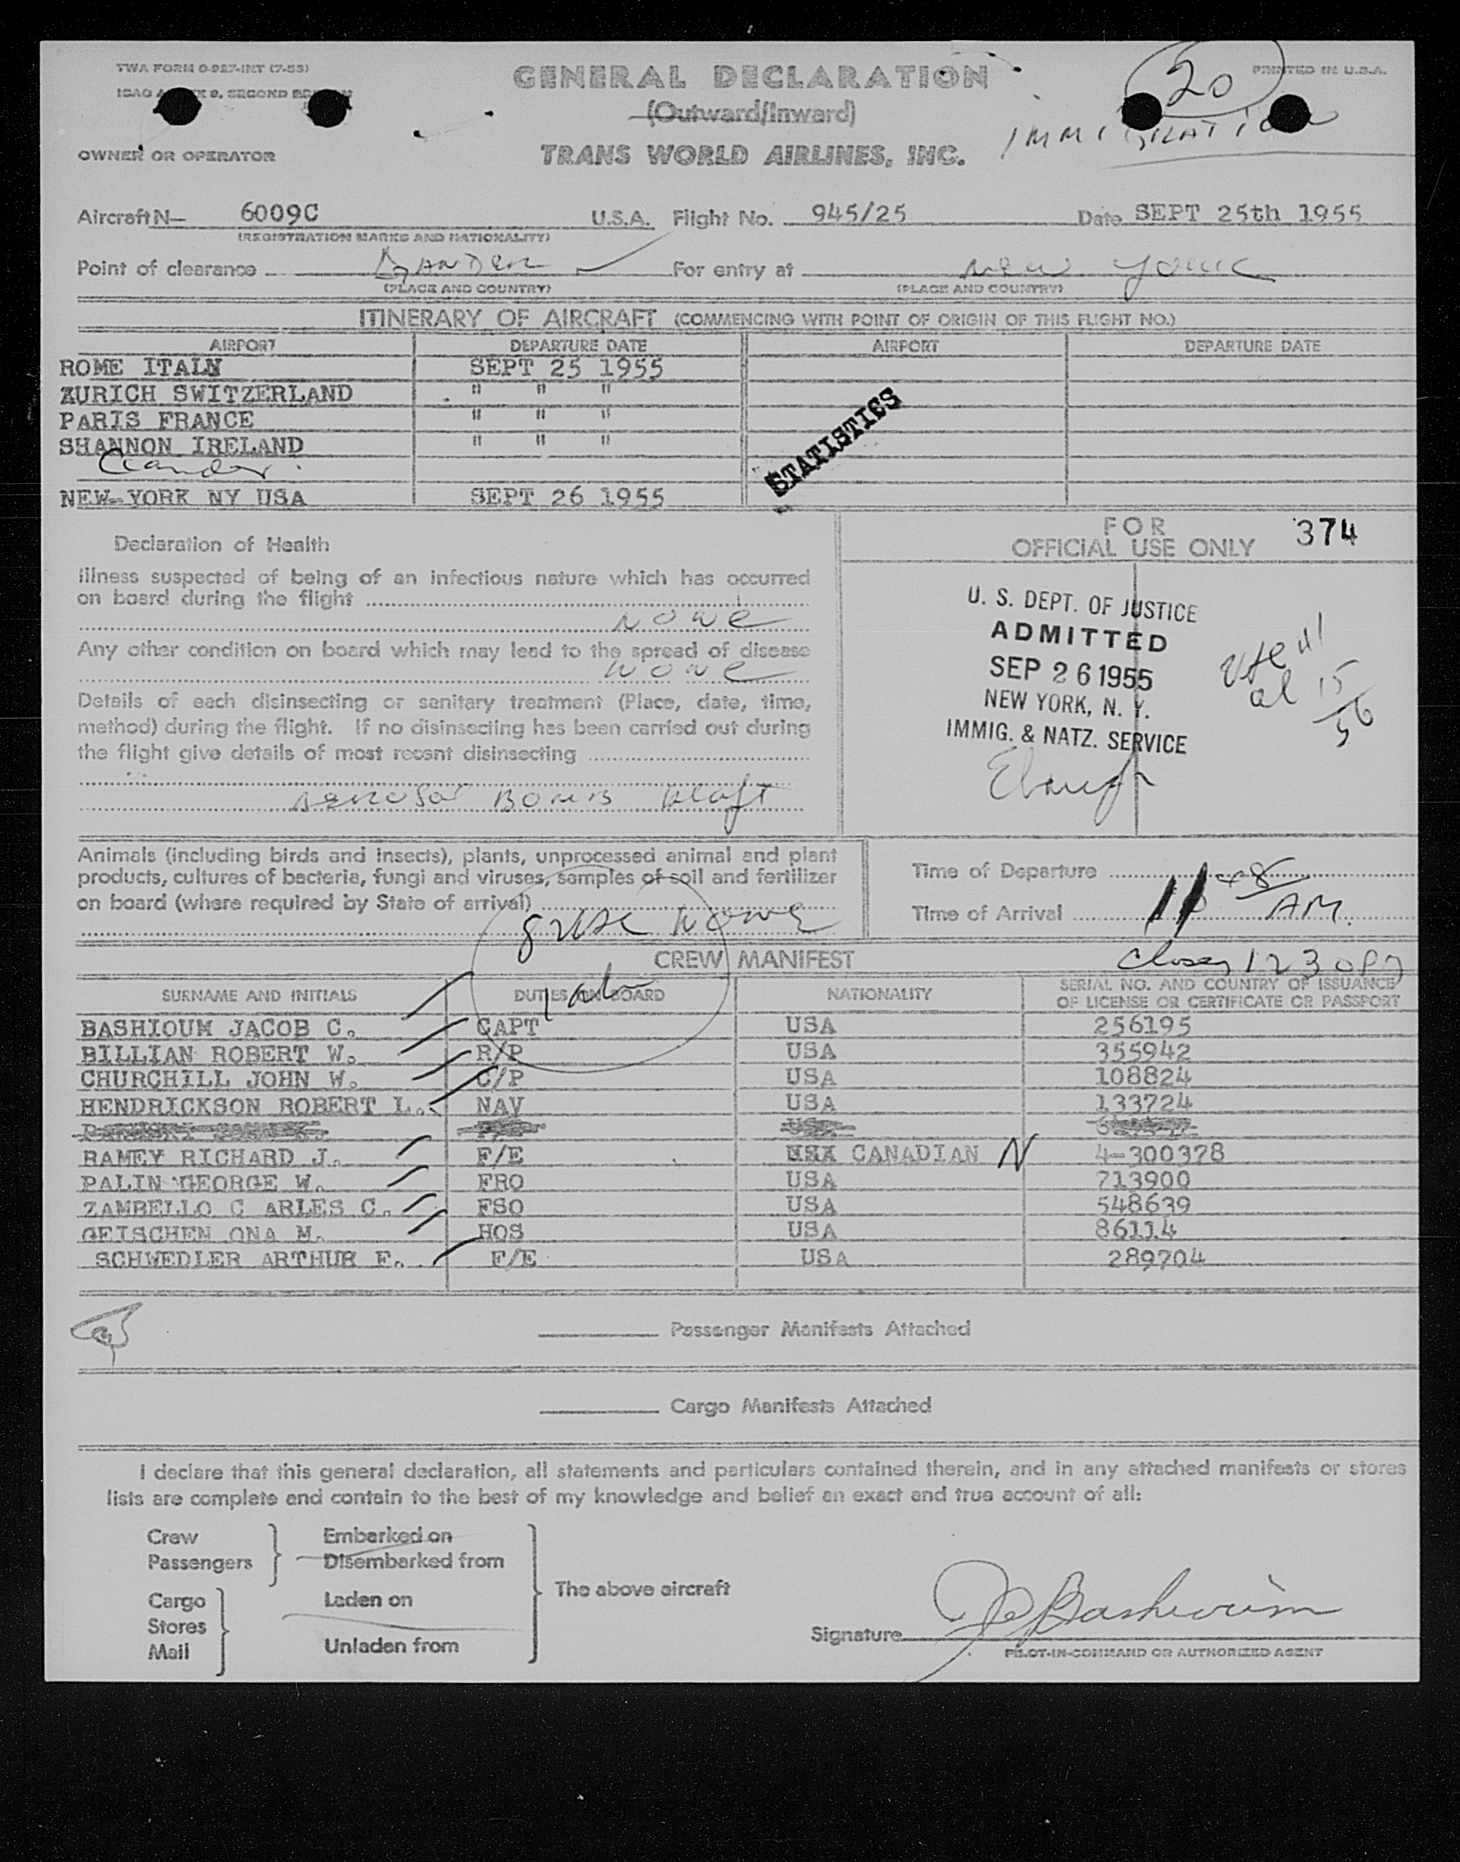 TWA FORM 0-927-INT (7-55)
PRINTED IN U.S.A.
GENERAL DECLARATION
20
(Outward/Inward)
IMMIGRATION
OWNER OR OPERATOR
TRANS WORLD AIRLINES, INC.
Aircraft N- 6009C U.S.A. Flight No. 945/25 Date SEPT 25th 1955
(REGISTRATION MARKS AND NATIONALITY)
Point of clearance GANDER For entry at NEW YORK
(PLACE AND COUNTRY) (PLACE AND COUNTRY)
ITINERARY OF AIRCRAFT (COMMENCING WITH POINT OF ORIGIN OF THIS FLIGHT NO.)
AIRPORT DEPARTURE DATE AIRPORT DEPARTURE DATE
ROME ITALY SEPT 25 1955
ZURICH SWITZERLAND " " "
PARIS FRANCE " " "
SHANNON IRELAND " " "
Gander
NEW YORK NY USA SEPT 26 1955
STATISTICS
FOR
OFFICIAL USE ONLY 374
Declaration of Health
Illness suspected of being of an infectious nature which has occurred
on board during the flight
NONE
Any other condition on board which may lead to the spread of disease
NONE
Details of each disinsecting or sanitary treatment (Place, date, time,
method) during the flight. If no disinsecting has been carried out during
the flight give details of most recent disinsecting
U. S. DEPT. OF JUSTICE
ADMITTED
SEP 26 1955
NEW YORK, N. Y.
IMMIG. & NATZ. SERVICE
Animals (including birds and insects), plants, unprocessed animal and plant
products, cultures of bacteria, fungi and viruses, samples of soil and fertilizer
on board (where required by State of arrival)
NONE
Time of Departure
Time of Arrival AM.
CREW MANIFEST
1230 PM
SURNAME AND INITIALS DUTIES ON BOARD NATIONALITY SERIAL NO. AND COUNTRY OF ISSUANCE
OF LICENSE OR CERTIFICATE OR PASSPORT
BASHIOUM JACOB C. CAPT USA 256195
BILLIAN ROBERT W. R/P USA 355942
CHURCHILL JOHN W. C/P USA 108824
HENDRICKSON ROBERT L. NAV USA 133724
RAMEY RICHARD J. F/E USA CANADIAN N 4-300378
PALIN GEORGE W. FRO USA 713900
ZAMBELLO C ARLES C. FSO USA 548639
GEISCHEN ONA M. HOS USA 86114
SCHWEDLER ARTHUR F. F/E USA 289704
Passenger Manifests Attached
Cargo Manifests Attached
I declare that this general declaration, all statements and particulars contained therein, and in any attached manifests or stores
lists are complete and contain to the best of my knowledge and belief an exact and true account of all:
Crew Embarked on
Passengers Disembarked from
The above aircraft
Cargo Laden on
Stores
Mail Unladen from
Signature JC Bashioum
PILOT-IN-COMMAND OR AUTHORIZED AGENT